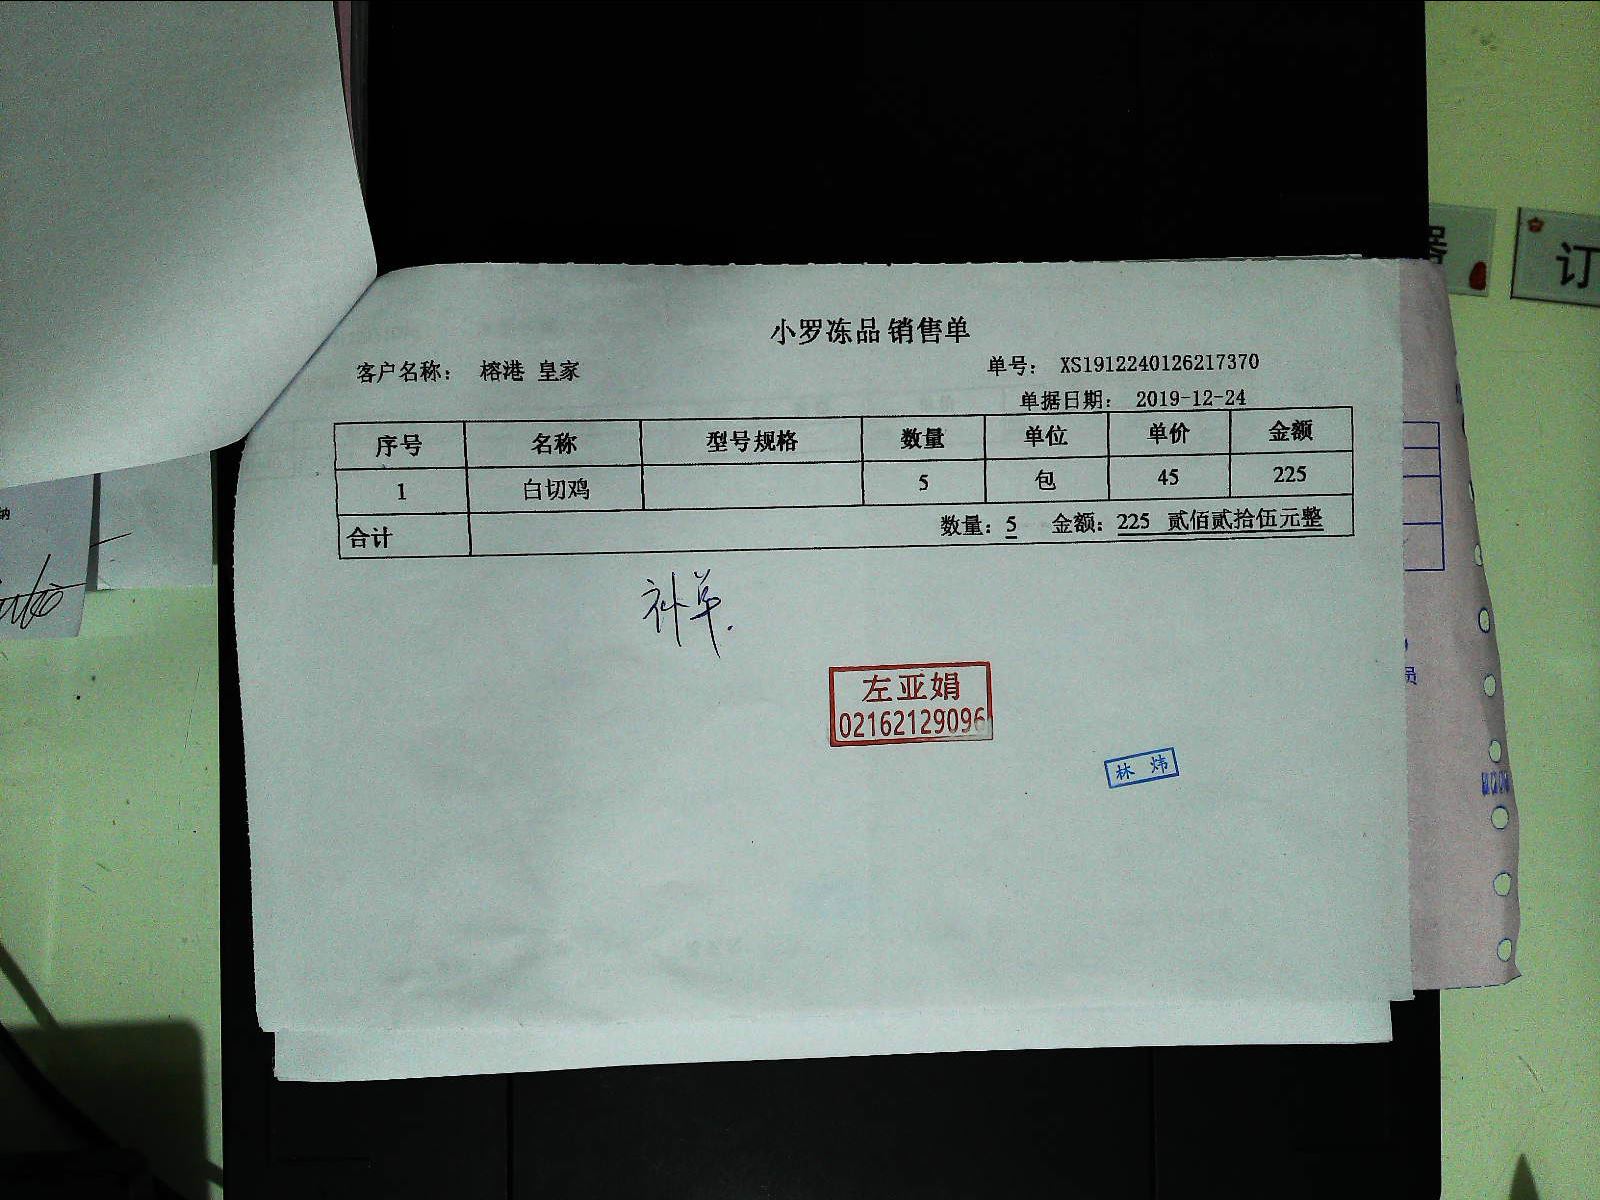 小罗冻品 销售单
客户名称： 榕港 皇家 单号： XS1912240126217370
单据日期： 2019-12-24
序号 名称 型号规格 数量 单位 单价 金额
1 白切鸡 5 包 45 225
合计 数量：5 金额：225 贰佰贰拾伍元整
补单.
左亚娟
02162129096
林 炜
订
员
纳